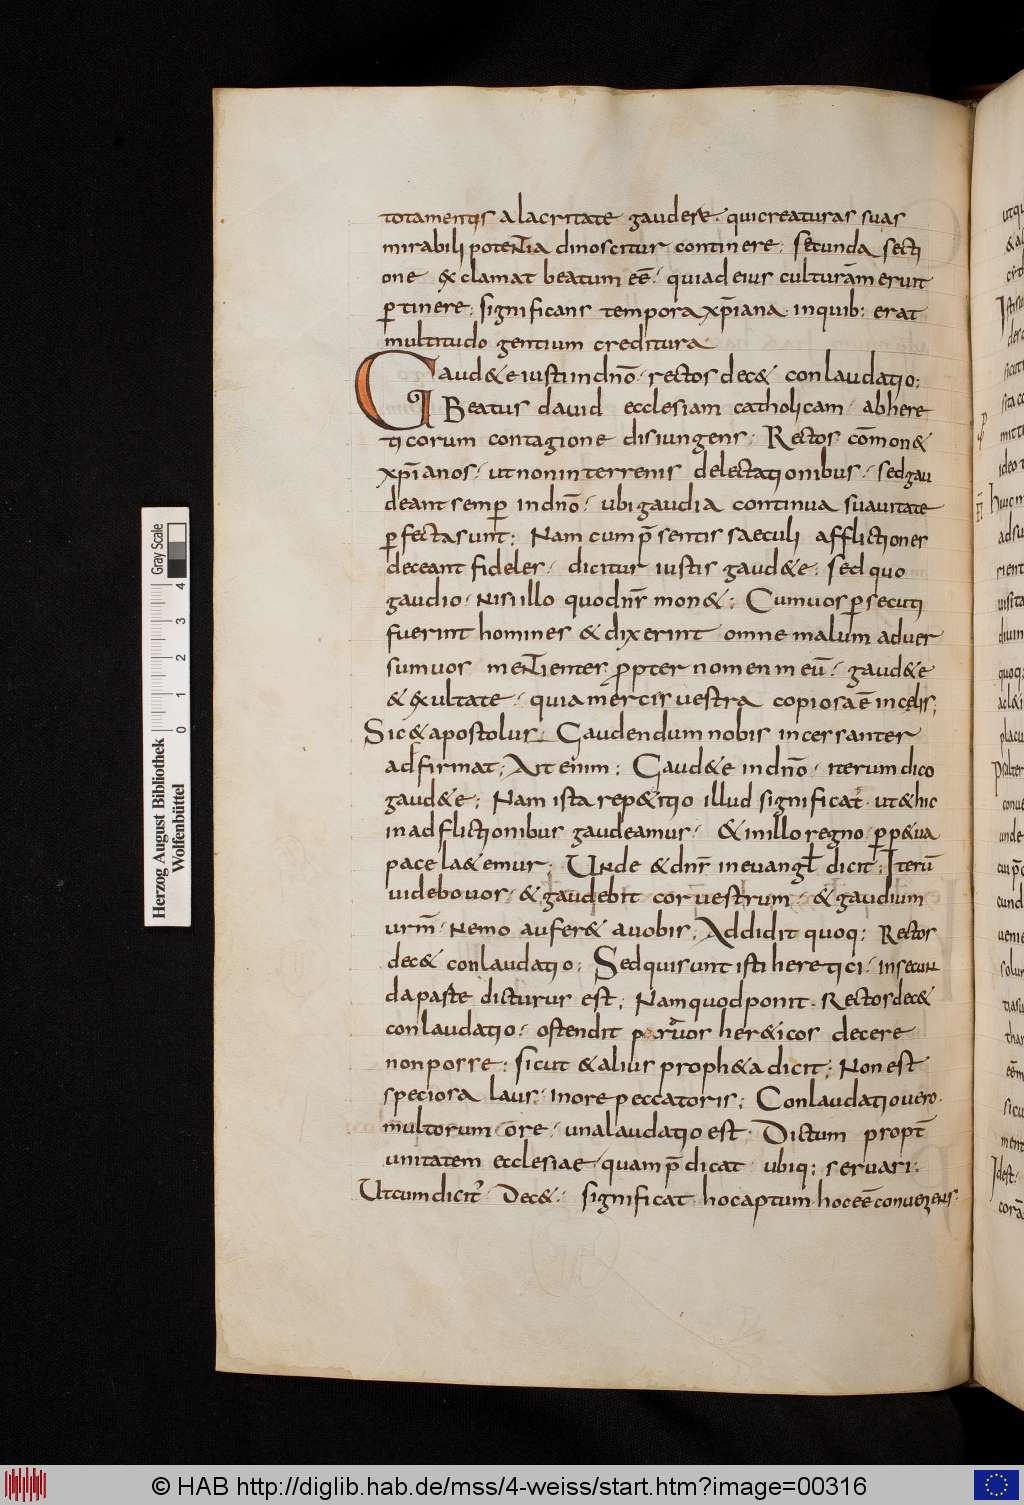 tota mentis alacritate gaudere. qui creaturas suas
mirabili potentia dinoscitur continere. secunda secti
one exclamat beatum eē. qui ad eius culturam meruit
ꝑtinere. significans tempora xp̄iana. in quib; erat
multitudo gentium creditura.
Gaud&e iusti in dn̄o. rectos dec& conlaudatio;
Beatus david ecclesiam catholicam ab here
ticorum contagione disiungens; Rectos cōmon&
xp̄ianos. ut non in terrenis delectationibus. sed gau
deant semꝑ in dn̄o. ubi gaudia continua suavitate
ꝑfecta sunt; Nam cum p̄sentis saeculi afflictiones
deceant fideles. dicitur iustis gaud&e. sed quo
gaudio. nisi illo quo dn̄s mon&; Cum vos ꝑsecuti
fuerint homines & dixerint omne malum adver
sum vos mentientes propter nomen meū. gaud&e
& exultate. quia mercis vestra copiosa ē in celis;
Sic & apostolus. Gaudendum nobis incessanter
adfirmat; Ait enim; Gaud&e in dn̄o. iterum dico
gaud&e; Nam ista rep&itio illud significat. ut & hic
in adflictionibus gaudeamus. & in illo regno ꝑp&ua
pace la&emur; Unde & dn̄s in evangł dicit; Iterū
videbo vos. & gaudebit cor vestrum. & gaudium
vrm̄. nemo aufer& a vobis; Addidit quoq; Rectos
dec& conlaudatio; Sed qui sunt isti heretici. in secun
da paste dicturus est; Nam quod ponit. Rectos dec&
conlaudatio. ostendit her&icos decere
non posse. sicut & alius proph&a dicit; Non est
speciosa laus. in ore peccatoris; Conlaudatio vero.
multorum ore. una laudatio est. Dictum propt̄
unitatem ecclesiae. quam p̄dicat ubiq; servari.
Ut cum dicit. Dec&. significat hoc aptum. hoc eē conveniens.
Herzog August Bibliothek
Wolfenbüttel
0 1 2 3 4
Gray Scale
© HAB http://diglib.hab.de/mss/4-weiss/start.htm?image=00316